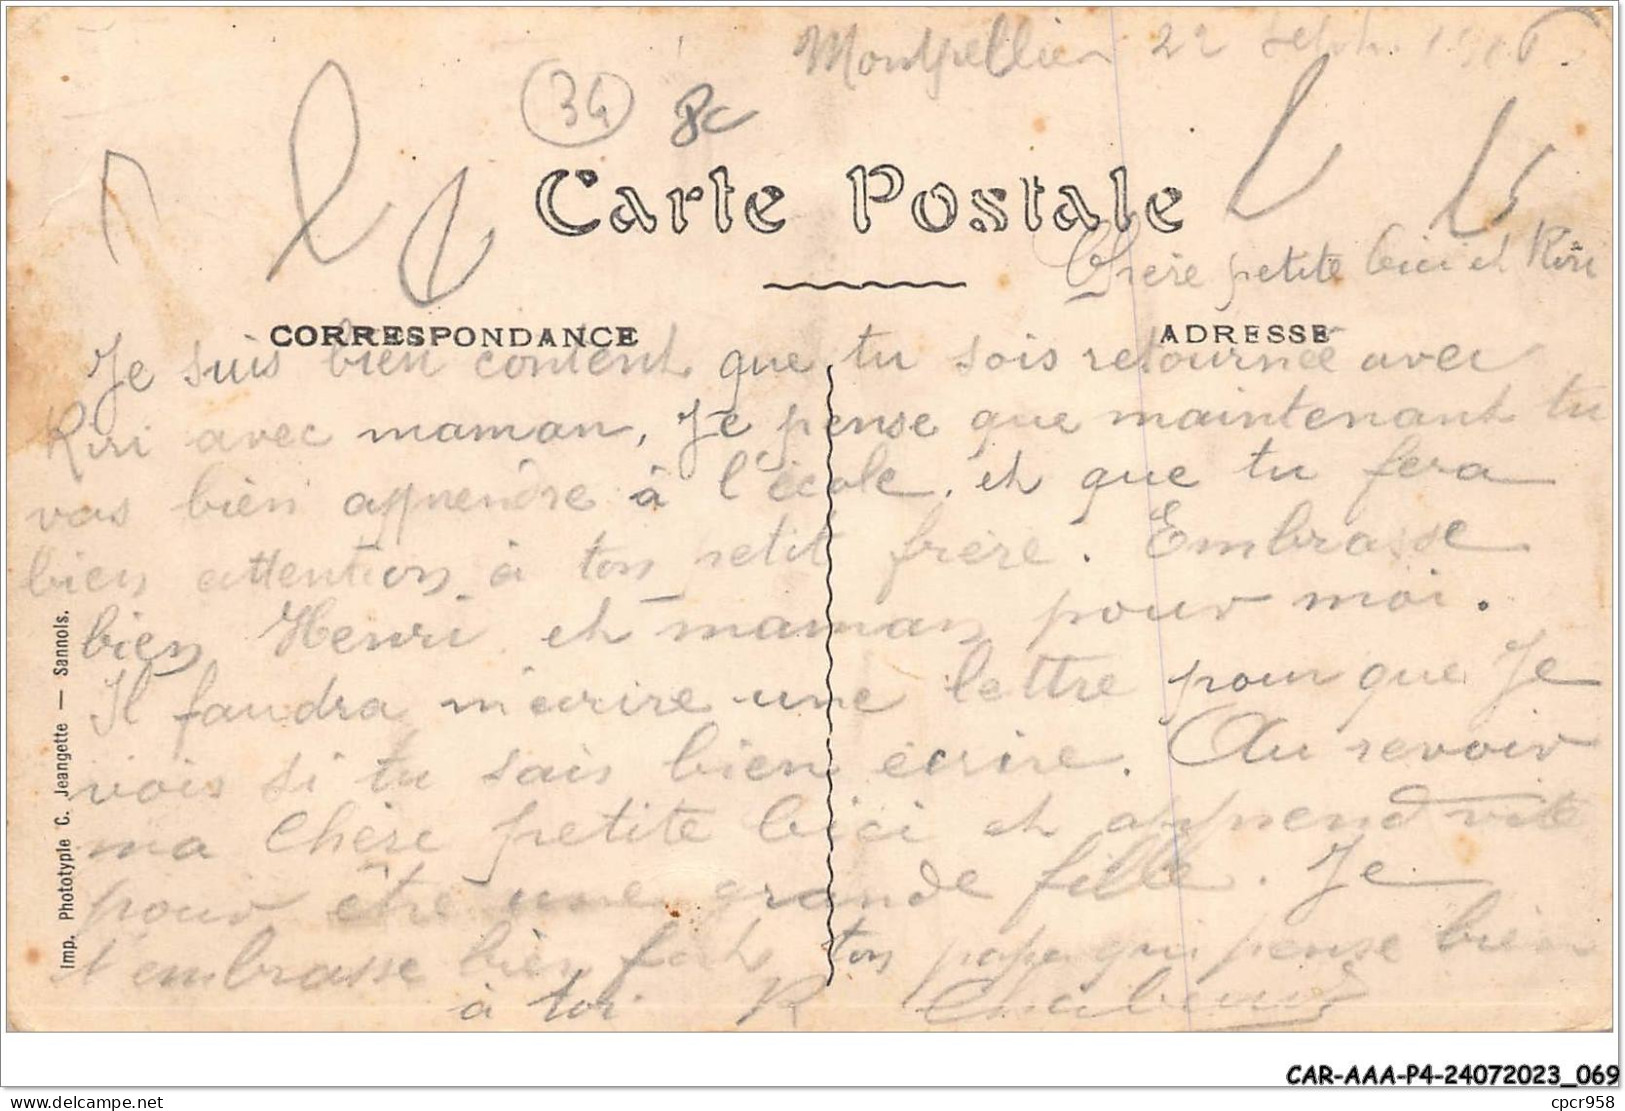 Montpellier 22 Sept. 1916.
34
8c
Carte Postale
Chère petite Cici et Riri
CORRESPONDANCE
ADRESSE
Je suis bien content que tu sois retournée avec
Riri avec maman, Je pense que maintenant tu
vas bien apprendre à l'école, et que tu fera
bien attention à ton petit frère. Embrasse
bien Henri et maman pour moi.
Il faudra m'ecrire une lettre pour que Je
vois si tu sais bien écrire. Au revoir
ma chère petite Cici et apprend vite
pour être une grande fille. Je
t'embrasse bien fort ton papa qui pense bien
à toi R
Imp. Phototypie C. Jeangette — Sannois.
CAR-AAA-P4-24072023_069
delcampe.net
cpcr958